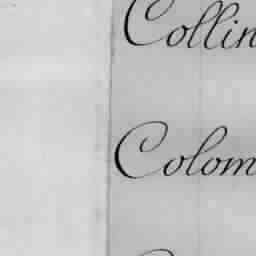 Collin
Colom